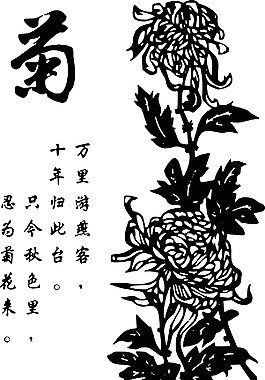 菊
万里游燕客，
十年归此台。
只今秋色里，
忍为菊花来。